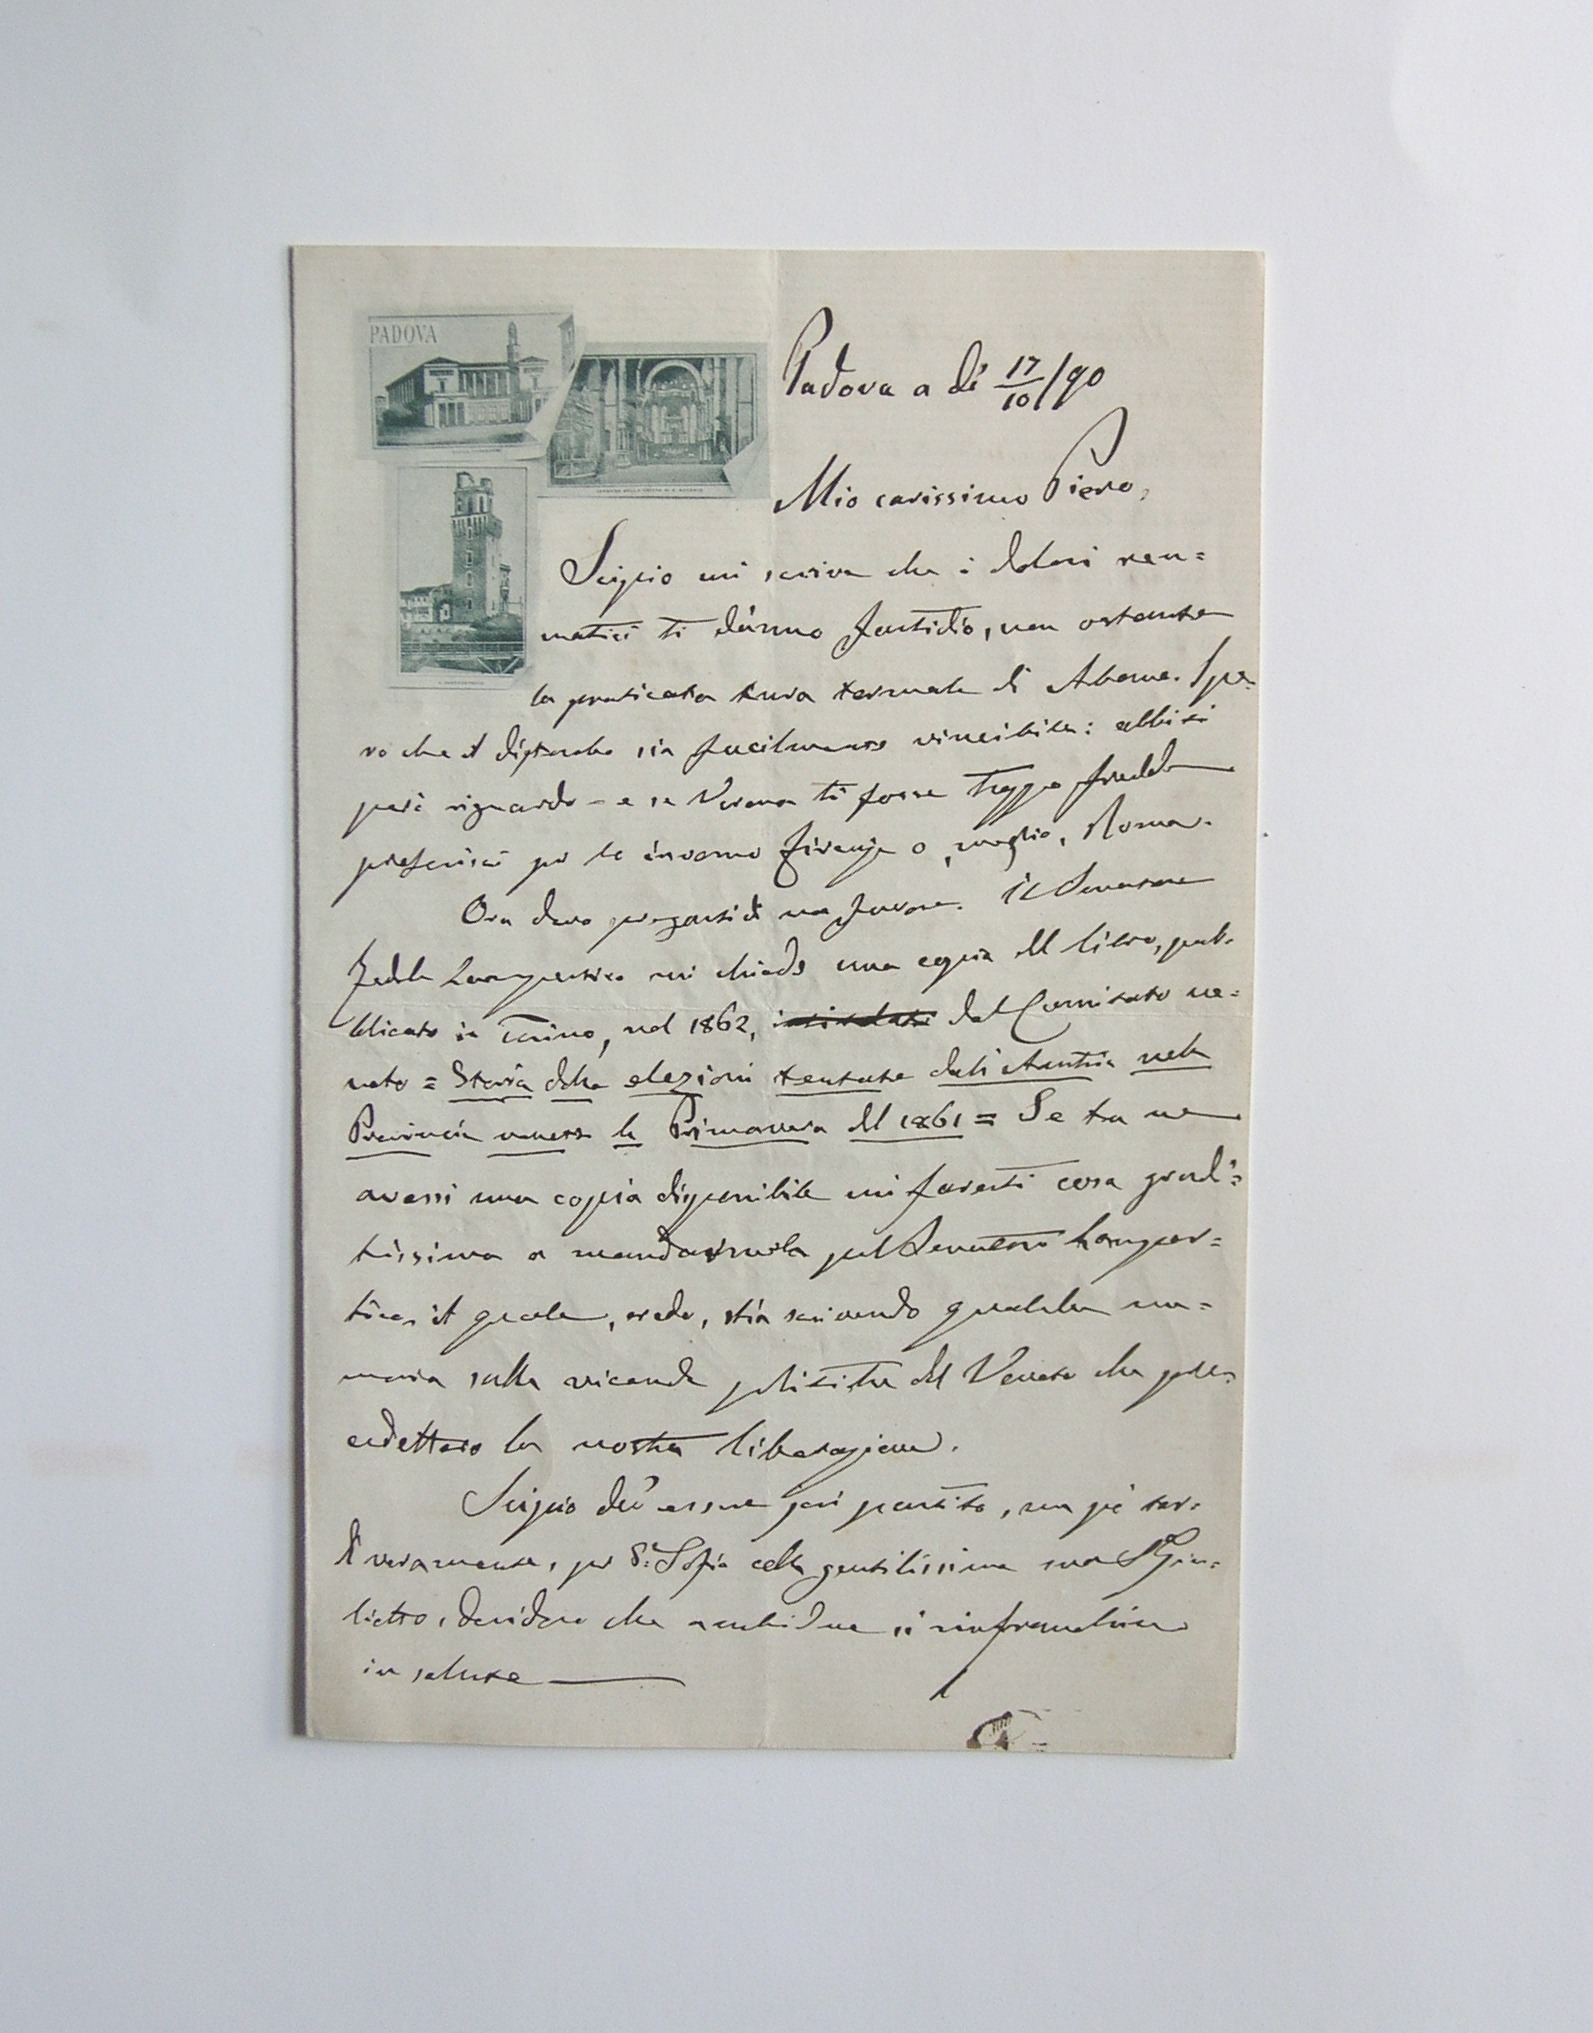 PADOVA
Padova a dì 17/10/90
Mio carissimo Piero,
Scipio mi scrive che i dolori reu=
matici ti dànno fastidio, non ostante
la praticata cura termale di Abano. Spe-
ro che il disturbo sia facilmente vincibile: abbiti
però riguardo – e se Verona ti fosse troppo fredda
preferisci per lo inverno Firenze o, meglio, Roma.
Ora devo pregarti di un favore. Il Senatore
Fedele Lampertico mi chiede una copia del libro, pub-
blicato in Torino, nel 1862, dal Comitato ve=
neto = Storia delle elezioni tentate dall'Austria nelle
Provincie venete la Primavera del 1861 = Se tu ne
avessi una copia disponibile mi faresti cosa gradi=
tissima a mandarmela pel Senatore Lamper=
tico, il quale, credo, stia scrivendo qualche me=
moria sulle vicende politiche del Veneto che prece-
edettero la nostra liberazione.
Scipio de' essere jeri partito, un po' tar-
di veramente, per S. Sofia colla gentilissima sua Sa Giu=
lietta, desidero che ambidue si rinfranchino
in salute